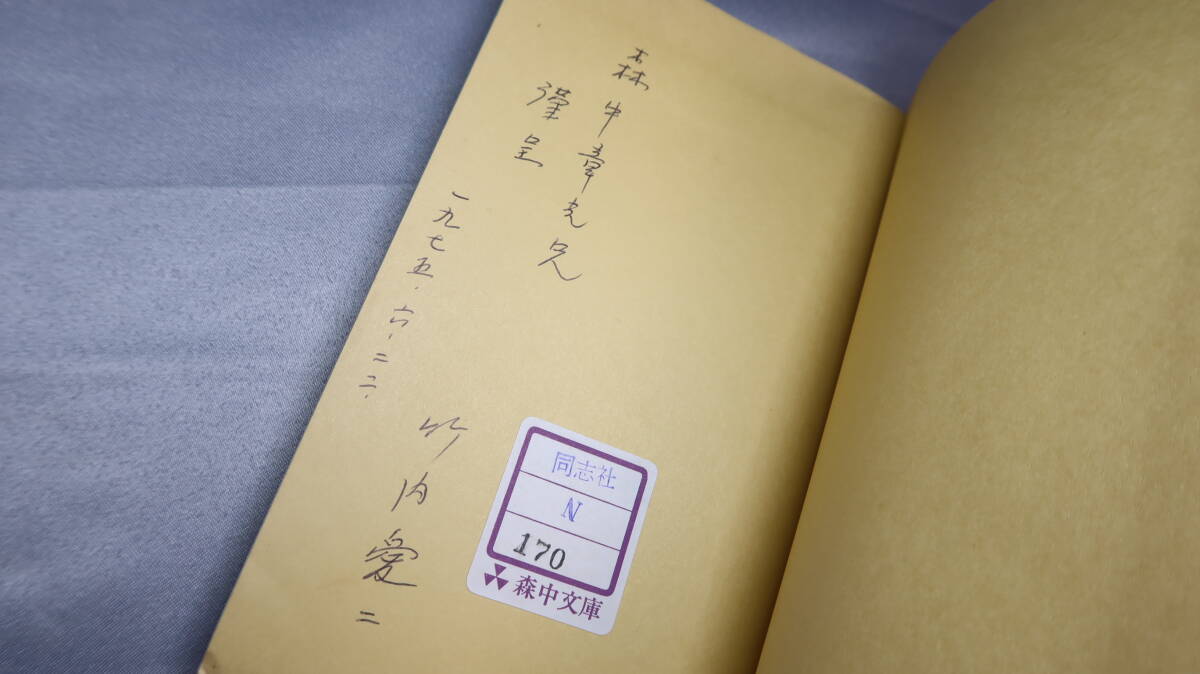 森中章光兄
謹呈
一九七五・六・二二・
竹内愛二
同志社
N
170
森中文庫